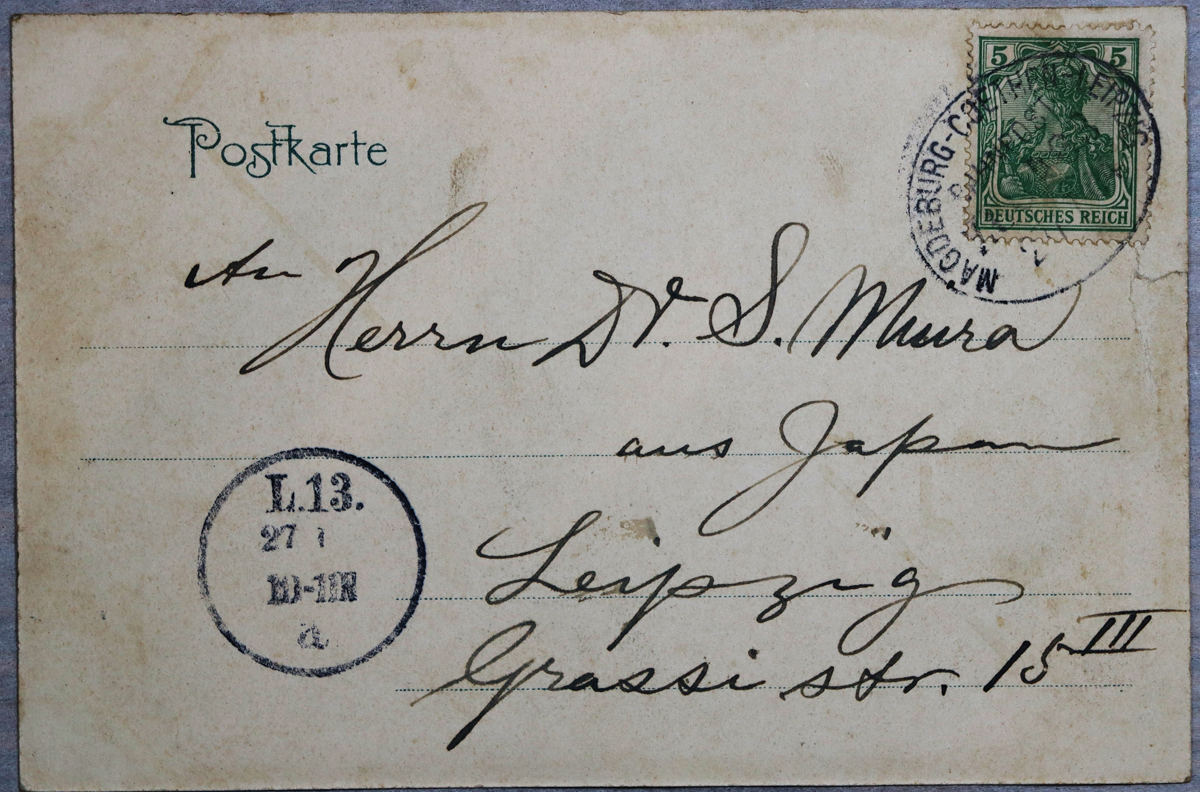 Postkarte
5 5
DEUTSCHES REICH
MAGDEBURG-COETHEN-LEIPZIG
An Herrn Dr. S. Miura
aus Japan
Leipzig
Grassi str. 15 III
L.13.
27
10-11N
a.